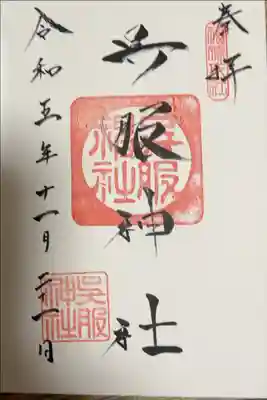 奉拝
呉服神社
呉服神社
令和五年十一月二十一日
呉服神社